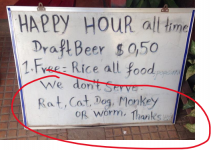 HAPPY HOUR all time
Draft Beer $ 0,50
1. Free = Rice all food
We dont Serve
Rat, Cat, Dog, Monkey
OR worm, Thanks